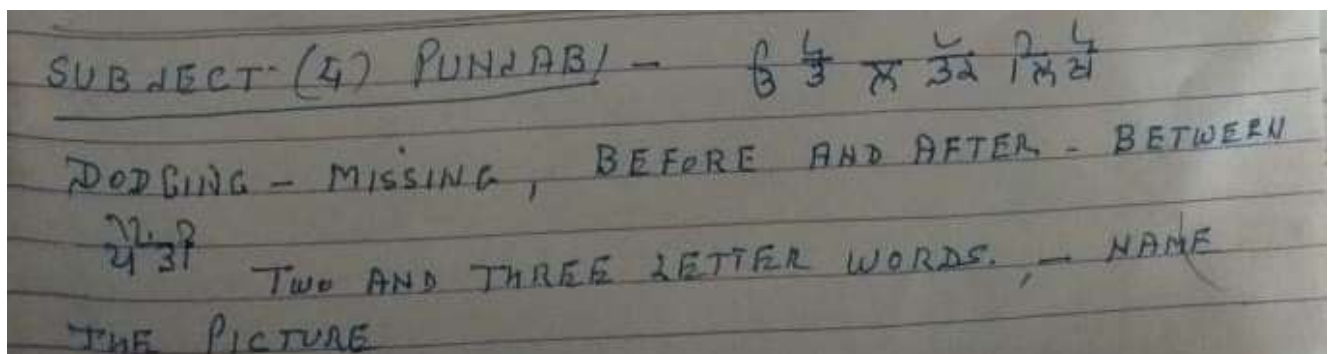 SUBJECT - (4) PUNJABI - ੳ ਤੋਂ ਲ ਤੱਕ ਲਿਖੋ
DODGING - MISSING, BEFORE AND AFTER - BETWEEN
TWO AND THREE LETTER WORDS. - NAME
THE PICTURE